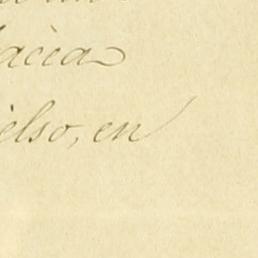 acia
elso, en